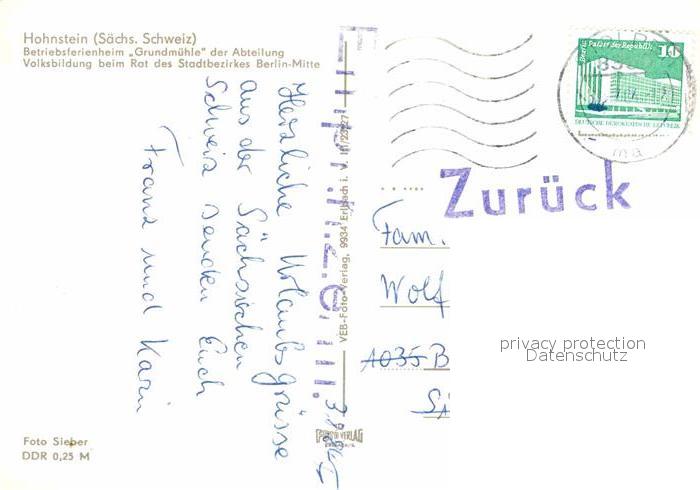 Hohnstein (Sächs. Schweiz)
Betriebsferienheim „Grundmühle" der Abteilung
Volksbildung beim Rat des Stadtbezirkes Berlin-Mitte
Herzliche Urlaubsgrüsse
aus der Sächsischen
Schweiz senden Euch
Franz und Karin
VEB-Foto-Verlag, 9934 Erlbach i. V.
Berlin, Palast der Republik
10
DEUTSCHE DEMOKRATISCHE REPUBLIK
Zurück
Fam.
Wolf
1035 B
Si
privacy protection
Datenschutz
Foto Sieber
DDR 0,25 M